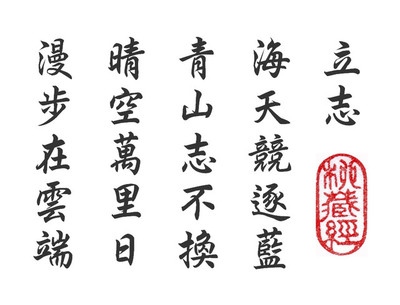 立志
海天競逐藍
青山志不換
晴空萬里日
漫步在雲端
祕藏經